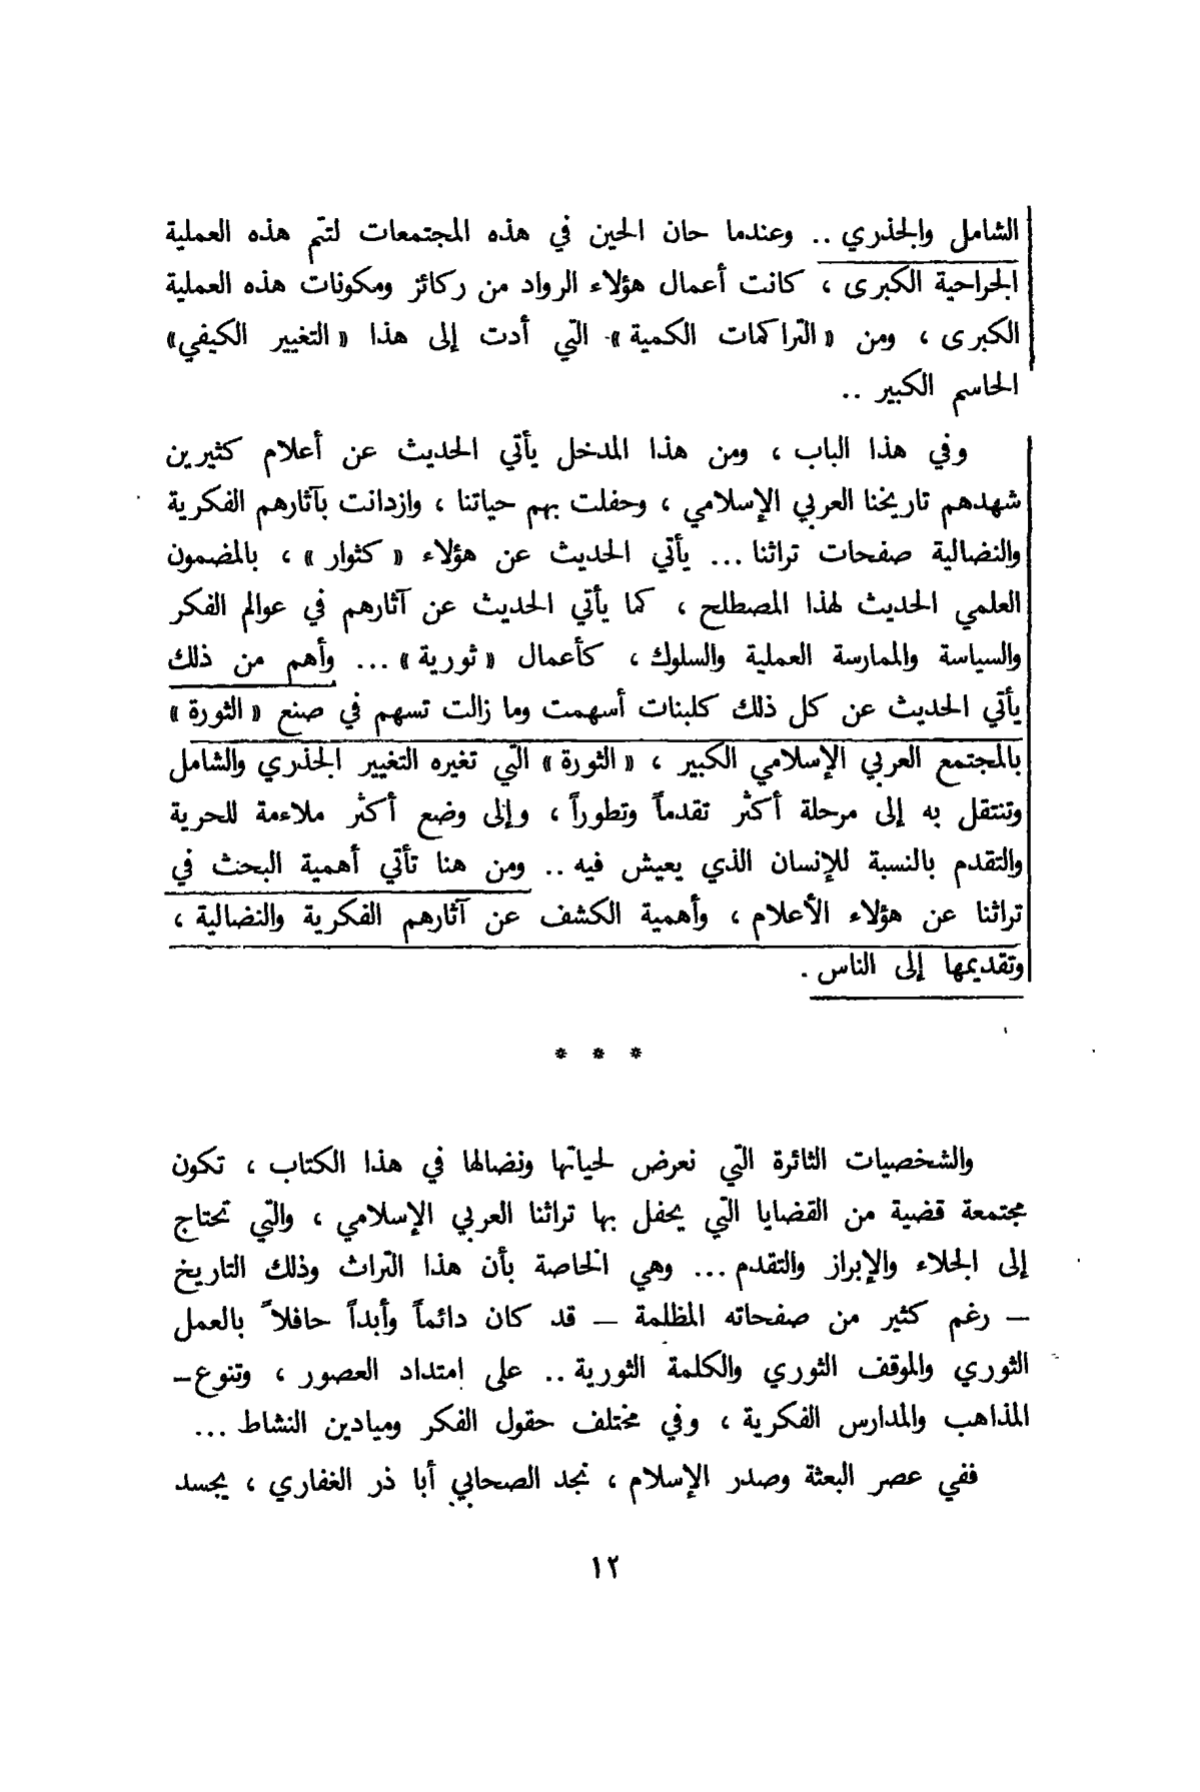 الشامل والجذري .. وعندما حان الحين في هذه المجتمعات لتتم هذه العملية
الجراحية الكبرى ، كانت أعمال هؤلاء الرواد من ركائز ومكونات هذه العملية
الكبرى ، ومن « التراكمات الكمية » التي أدت إلى هذا « التغيير الكيفي»
الحاسم الكبير ..
وفي هذا الباب ، ومن هذا المدخل يأتي الحديث عن أعلام كثيرين
شهدهم تاريخنا العربي الإسلامي ، وحفلت بهم حياتنا ، وازدانت بآثارهم الفكرية
والنضالية صفحات تراثنا ... يأتي الحديث عن هؤلاء « كثوار » ، بالمضمون
العلمي الحديث لهذا المصطلح ، كما يأتي الحديث عن آثارهم في عوالم الفكر
والسياسة والممارسة العملية والسلوك ، كأعمال « ثورية » ... وأهم من ذلك
يأتي الحديث عن كل ذلك كلبنات أسهمت وما زالت تسهم في صنع « الثورة »
بالمجتمع العربي الإسلامي الكبير ، « الثورة » التي تغيره التغيير الجذري والشامل
وتنتقل به إلى مرحلة أكثر تقدماً وتطوراً ، وإلى وضع أكثر ملاءمة للحرية
والتقدم بالنسبة للإنسان الذي يعيش فيه .. ومن هنا تأتي أهمية البحث في
تراثنا عن هؤلاء الأعلام ، وأهمية الكشف عن آثارهم الفكرية والنضالية ،
وتقديمها إلى الناس .
* * *
والشخصيات الثائرة التي نعرض لحياتها ونضالها في هذا الكتاب ، تكون
مجتمعة قضية من القضايا التي يحفل بها تراثنا العربي الإسلامي ، والتي تحتاج
إلى الجلاء والإبراز والتقدم ... وهي الخاصة بأن هذا التراث وذلك التاريخ
– رغم كثير من صفحاته المظلمة – قد كان دائماً وأبداً حافلاً بالعمل
الثوري والموقف الثوري والكلمة الثورية .. على امتداد العصور ، وتنوع–
المذاهب والمدارس الفكرية ، وفي مختلف حقول الفكر وميادين النشاط ...
ففي عصر البعثة وصدر الإسلام ، نجد الصحابي أبا ذر الغفاري ، يجسد
١٢